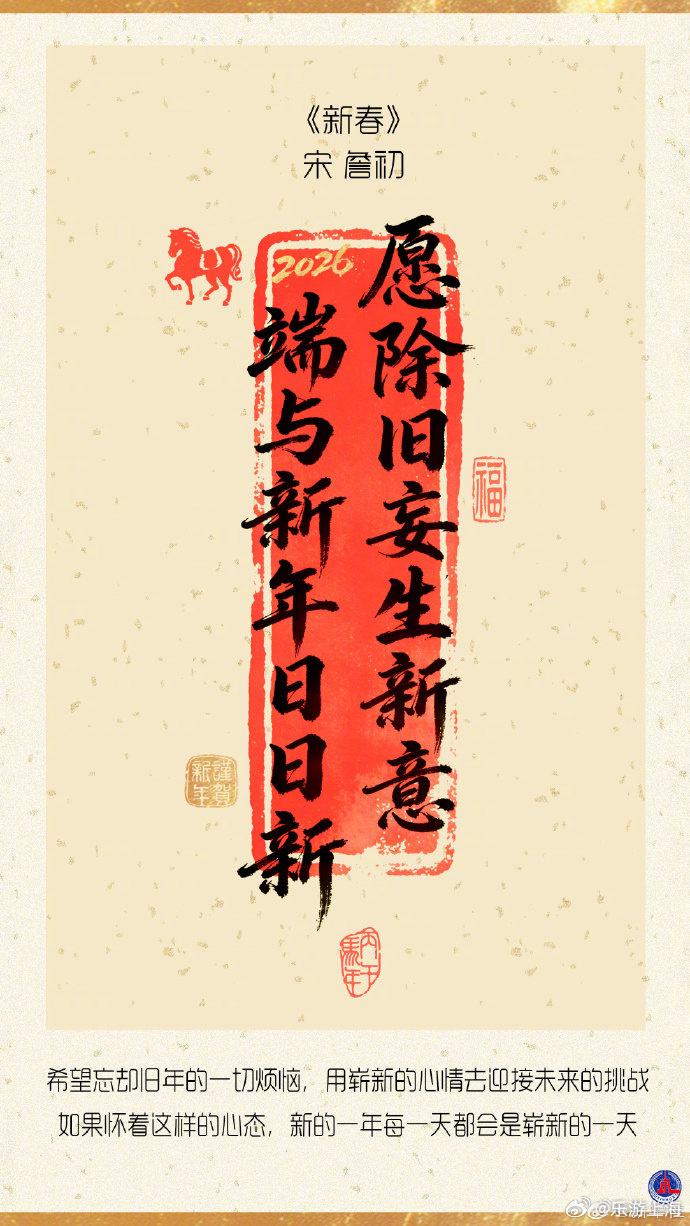 《新春》
宋 詹初
2026
愿除旧妄生新意
端与新年日日新
福
謹賀
新年
丙午
馬年
希望忘却旧年的一切烦恼，用崭新的心情去迎接未来的挑战
如果怀着这样的心态，新的一年每一天都会是崭新的一天
@乐游上海